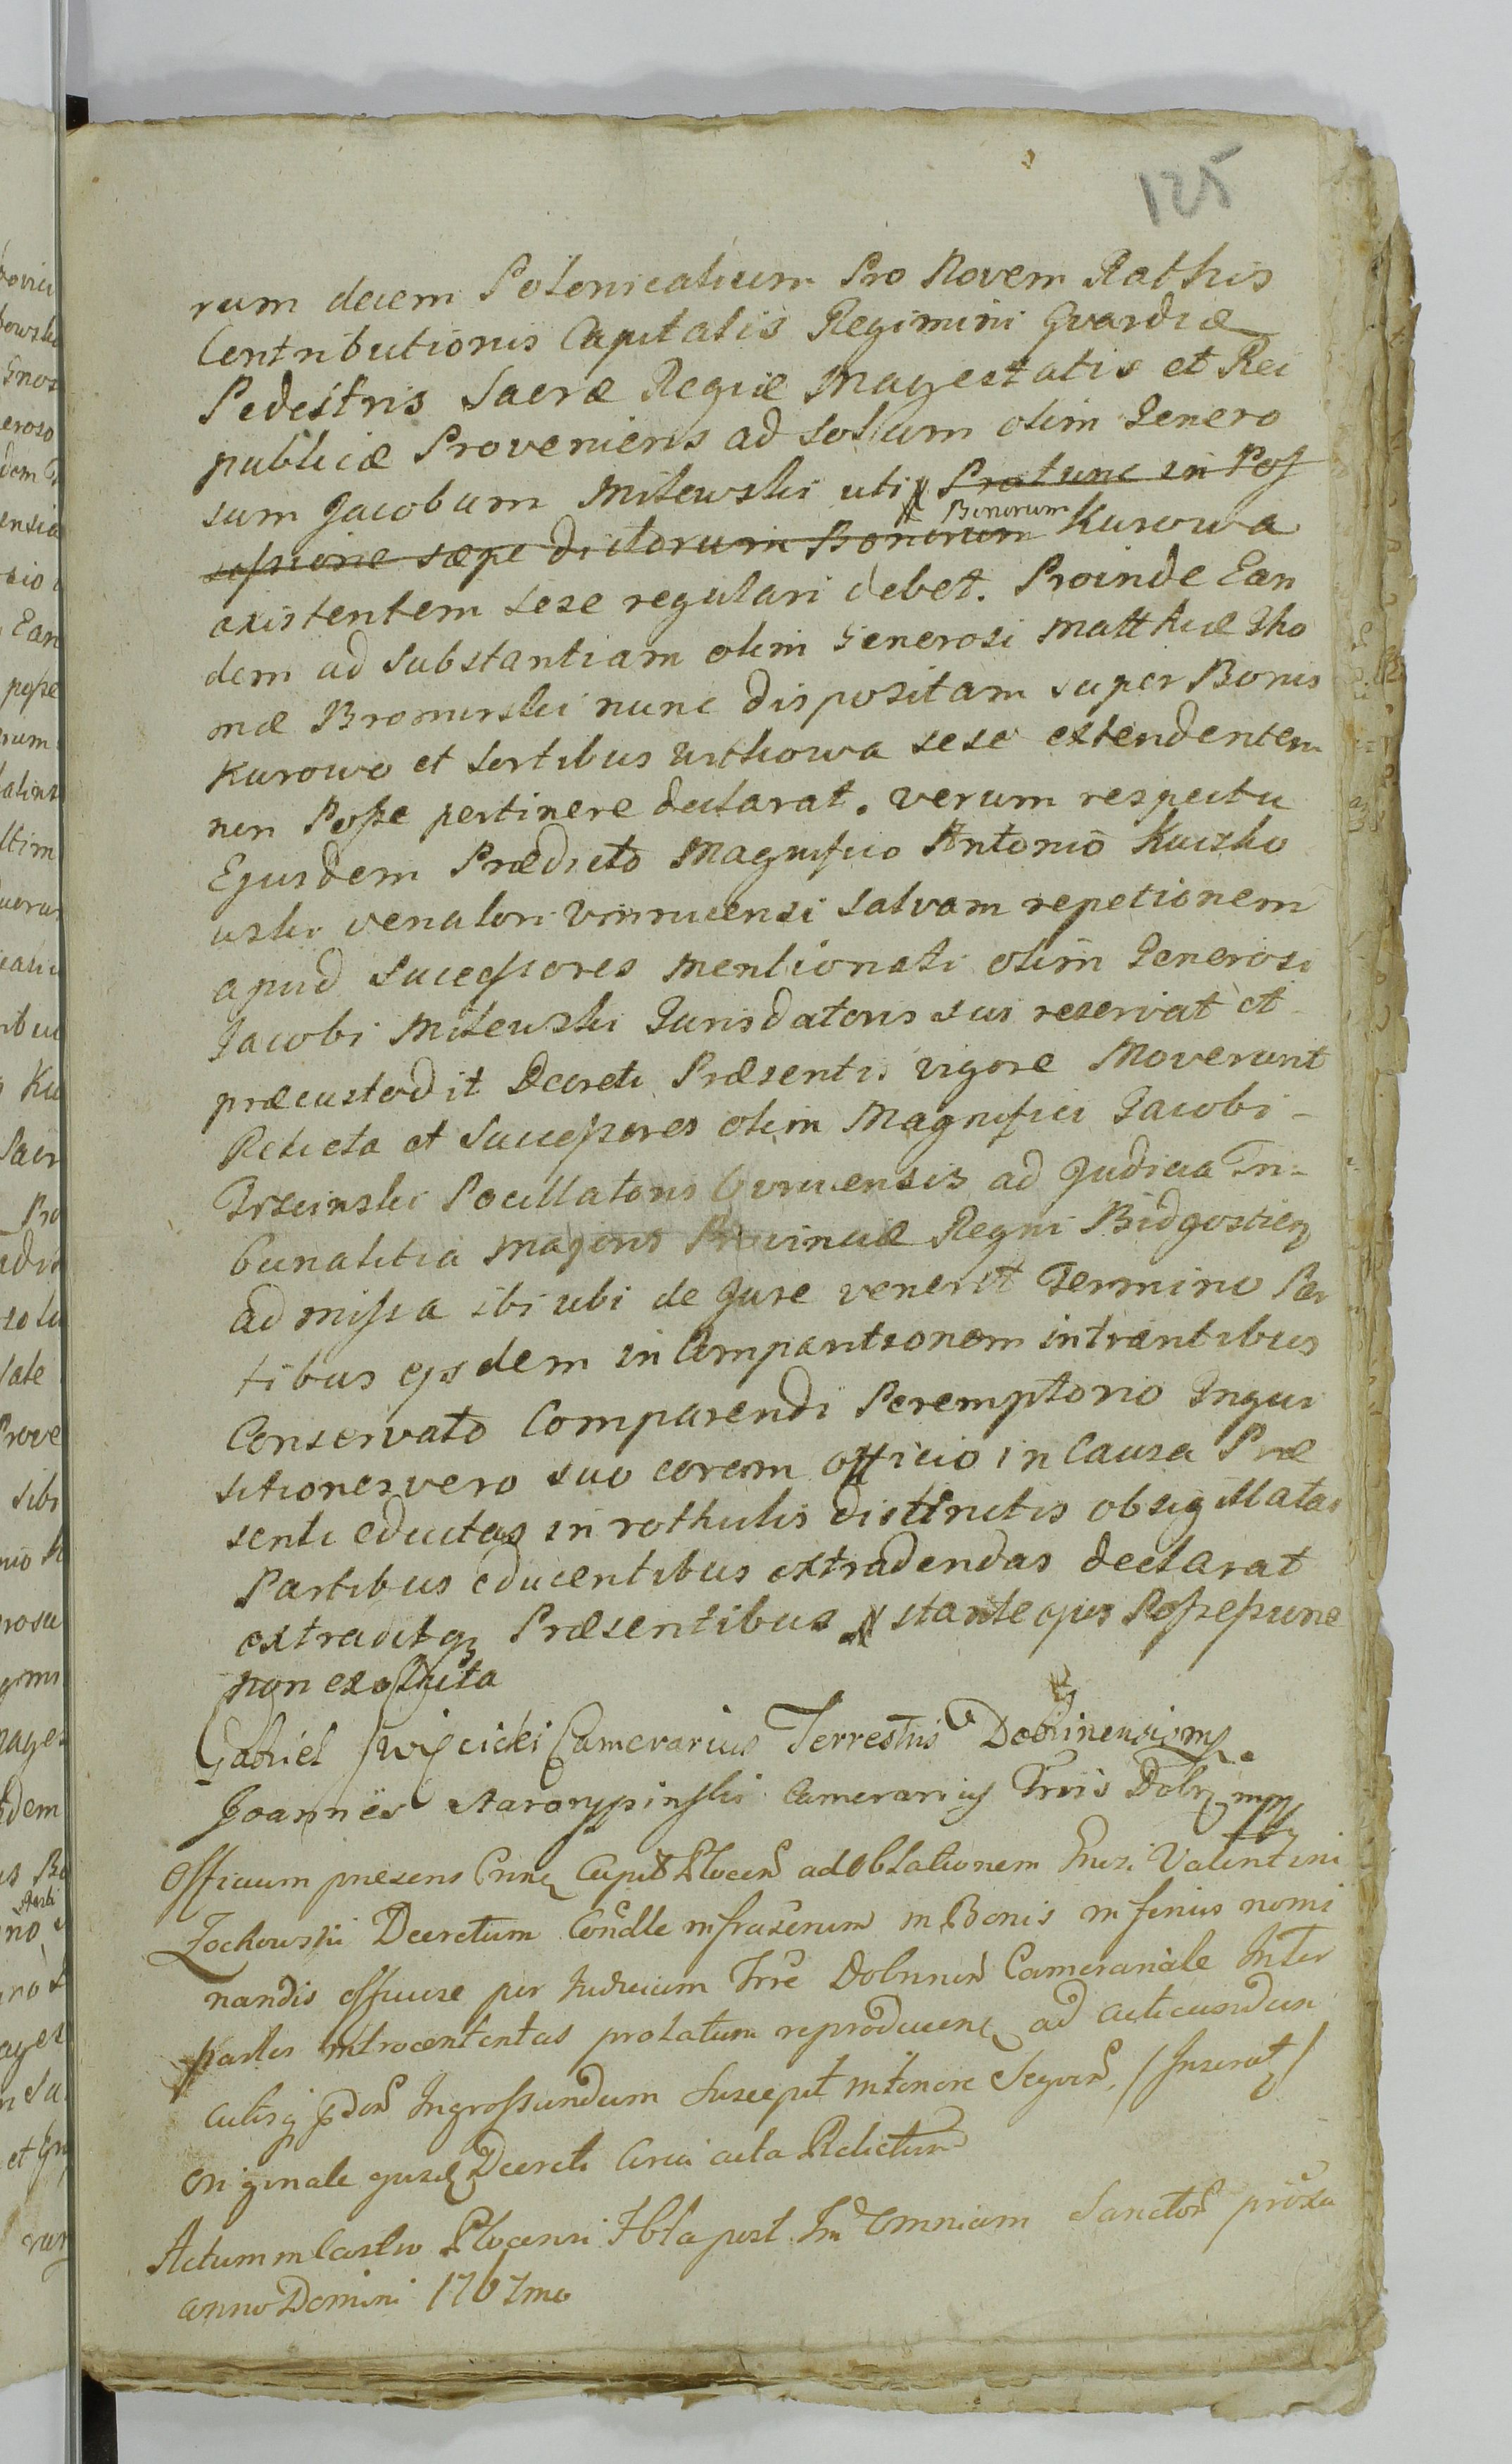 125
rum decem Polonicalium Pro Novem Rathis
Contributionis Capitalis Regimini Gvardiæ
Pedestris Sacræ Regiæ Mayestatis et Rei
publicæ Proveniens ad solum olim Genero
sum Jacobum Milewski uti Protunc in Pos
sessione sæpe dictorum Bonorum Bonorum Kurowa
existentem sese regulari debet. Proinde Ean
dem ad substantiam olim Generosi Matthiæ Tho
mæ Bromirski nunc dispositam super Bonis
Kurowo et Sortibus Withowa sese extendentem
non Posse pertinere declarat. Verum respectu
Ejusdem Prædicto Magnifico Antonio Kuczko
wski Venatori Vinnicensi salvam repetionem
apud Sucessores mentionati olim Generosi
Jacobi Milewski Jurisdatoris sui reservat et
præcustodit Decreti Præsentis vigore Moverunt
Relicta et Successores olim Magnifici Jacobi
Trzcinski Pocillatoris ad Judicia Tri=
bunalitia Majoris Provinciæ Regni Bidgostien
admissa ibi ubi de Jure venerit Termino Par
tibus ejsdem in Comparitionem intrantibus
Conservato Comparendi Peremptorio Inqui
sitiones vero suo corem officio in Causa Præ
senti eductas in rothulis distinctis obsigillatas
Partibus educentibus extradendas declarat
extraditq Præsentibus stante ejus Possessione
non
Gabriel Swięcicki Camerarius Terrestris Dobrinensis mp.
Joannes Starorypinski Camerarius Trris Dobr mp
Officium præsens Cap Plocen ad oblationem Gnrsi Valentini
Zochowski Decretum Condle infrascrium in Bonis inferius nomi
nandis officiose per Judicium Trre Dobrinen Cameranale Inter
partes introcententas prolatum reproducen ad acticandum
actisq Ingrossandum suscepit in tenore Seqven. /Inserat/
Originale Decreti Circa acta Relictum
Actum in Castro Plocensi Fbta post Tm Omnium Sanctor prosa
anno Domini 1767mo